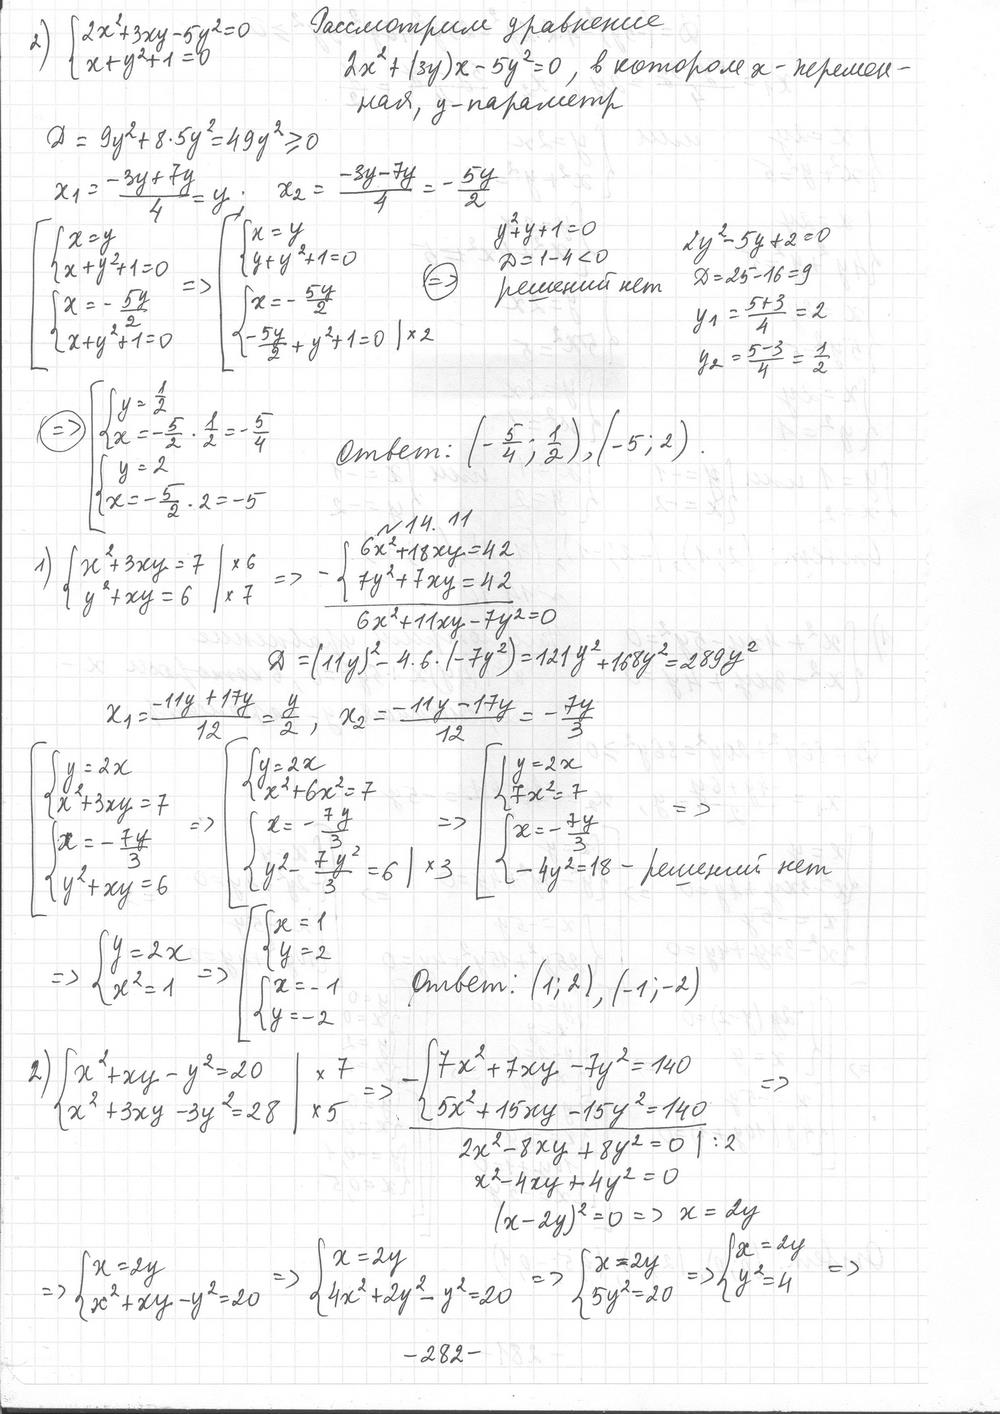 2) { 2x²+3xy-5y²=0
x+y²+1=0
Рассмотрим уравнение
2x²+(3y)x-5y²=0, в котором x-перемен-
ная, y-параметр
D = 9y²+8·5y²=49y²≥0
x₁ = (-3y+7y)/4 = y; x₂ = (-3y-7y)/4 = -5y/2
[ { x=y
x+y²+1=0
{ x=-5y/2
x+y²+1=0
=> [ { x=y
y+y²+1=0
{ x=-5y/2
-5y/2+y²+1=0 |×2
=>
y²+y+1=0
D=1-4<0
решений нет
2y²-5y+2=0
D=25-16=9
y₁=(5+3)/4=2
y₂=(5-3)/4=1/2
=> [ { y=1/2
x=-5/2·1/2=-5/4
{ y=2
x=-5/2·2=-5
Ответ: (-5/4; 1/2), (-5; 2).
№14.11
1) { x²+3xy=7 |×6
y²+xy=6 |×7
=> - { 6x²+18xy=42
7y²+7xy=42
6x²+11xy-7y²=0
D=(11y)²-4·6·(-7y²)=121y²+168y²=289y²
x₁=(-11y+17y)/12=y/2, x₂=(-11y-17y)/12=-7y/3
[ { y=2x
x²+3xy=7
{ x=-7y/3
y²+xy=6
=> [ { y=2x
x²+6x²=7
{ x=-7y/3
y²-7y²/3=6 |×3
=> [ { y=2x
7x²=7
{ x=-7y/3
-4y²=18 - решений нет
=>
=> { y=2x
x²=1
=> [ { x=1
y=2
{ x=-1
y=-2
Ответ: (1; 2), (-1; -2)
2) { x²+xy-y²=20 |×7
x²+3xy-3y²=28 |×5
=> - { 7x²+7xy-7y²=140
5x²+15xy-15y²=140
=>
2x²-8xy+8y²=0 |:2
x²-4xy+4y²=0
(x-2y)²=0 => x=2y
=> { x=2y
x²+xy-y²=20
=> { x=2y
4x²+2y²-y²=20
=> { x=2y
5y²=20
=> { x=2y
y²=4
=>
-282-